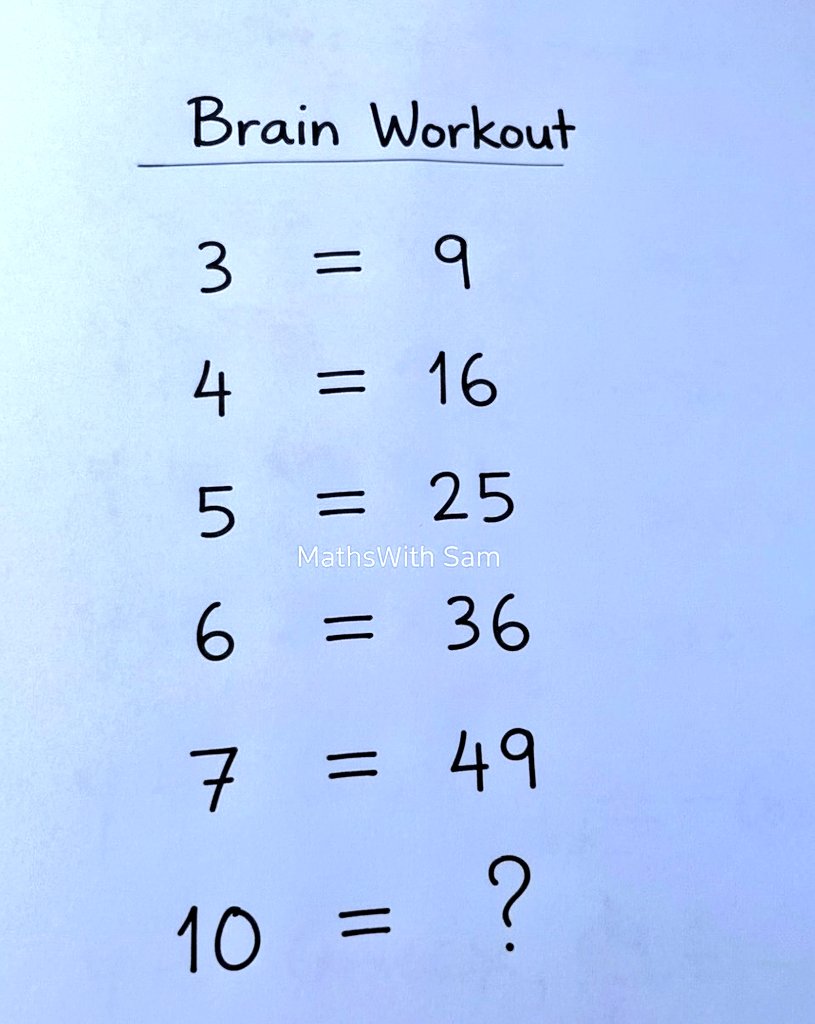 Brain Workout
3 = 9
4 = 16
5 = 25
MathsWith Sam
6 = 36
7 = 49
10 = ?